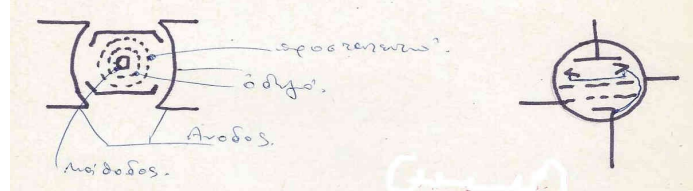 προστατευτικό.
οδηγό.
Άνοδος.
κάθοδος.